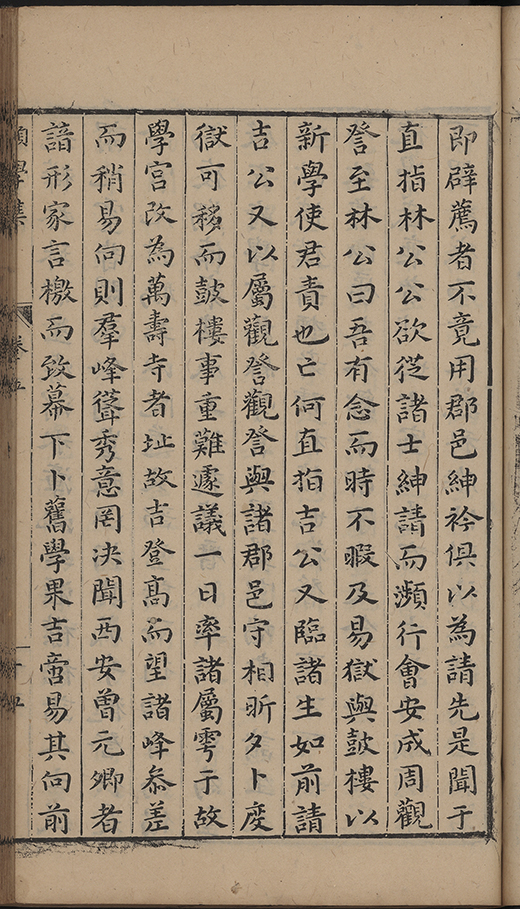 即辟薦者不竟用郡邑紳衿俱以為請先是聞于
直指林公公欲從諸士紳請而瀕行會安成周觀
詧至林公曰吾有念而時不暇及易獄與鼓樓以
新學使君責也亡何直指吉公又臨諸生如前請
吉公又以屬觀詧觀詧與諸郡邑守相昕夕卜度
獄可移而鼓樓事重難遽議一日率諸屬雩于故
學宮改為萬壽寺者址故吉登高而望諸峰叅差
而稍易向則羣峰聳秀意罔决聞西安曾元卿者
諳形家言檄而致幕下卜舊學果吉啻易其向前
學集
卷五